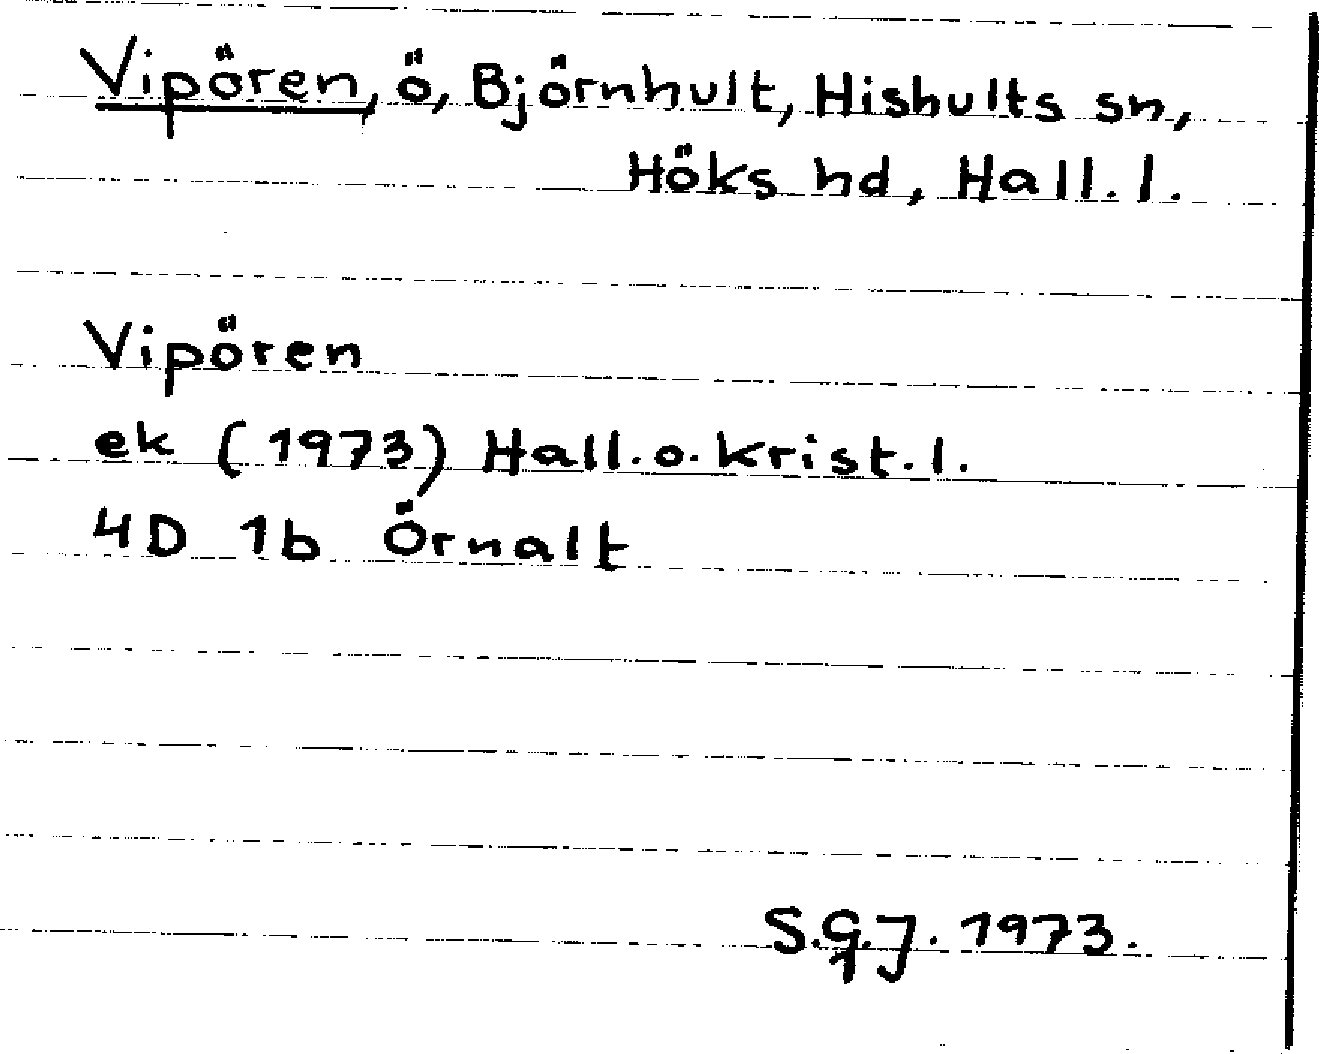 Vipören, ö, Björnhult, Hishults sn,
Höks hd, Hall. l.
Vipören
ek (1973) Hall. o. Krist. l.
4D 1b Örnalt
S.G.J. 1973.